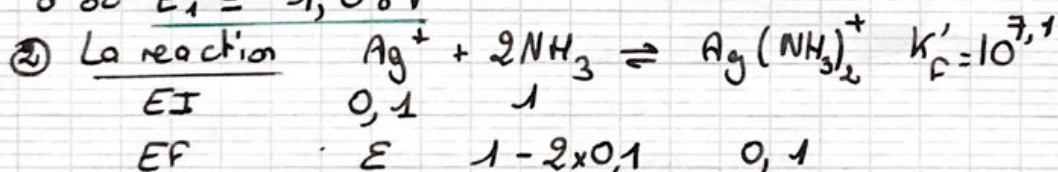 E₁ = -1,08V
② La reaction Ag⁺ + 2NH₃ ⇌ Ag(NH₃)₂⁺ K'f = 10^7,1
EI 0,1 1
EF ε 1-2x0,1 0,1